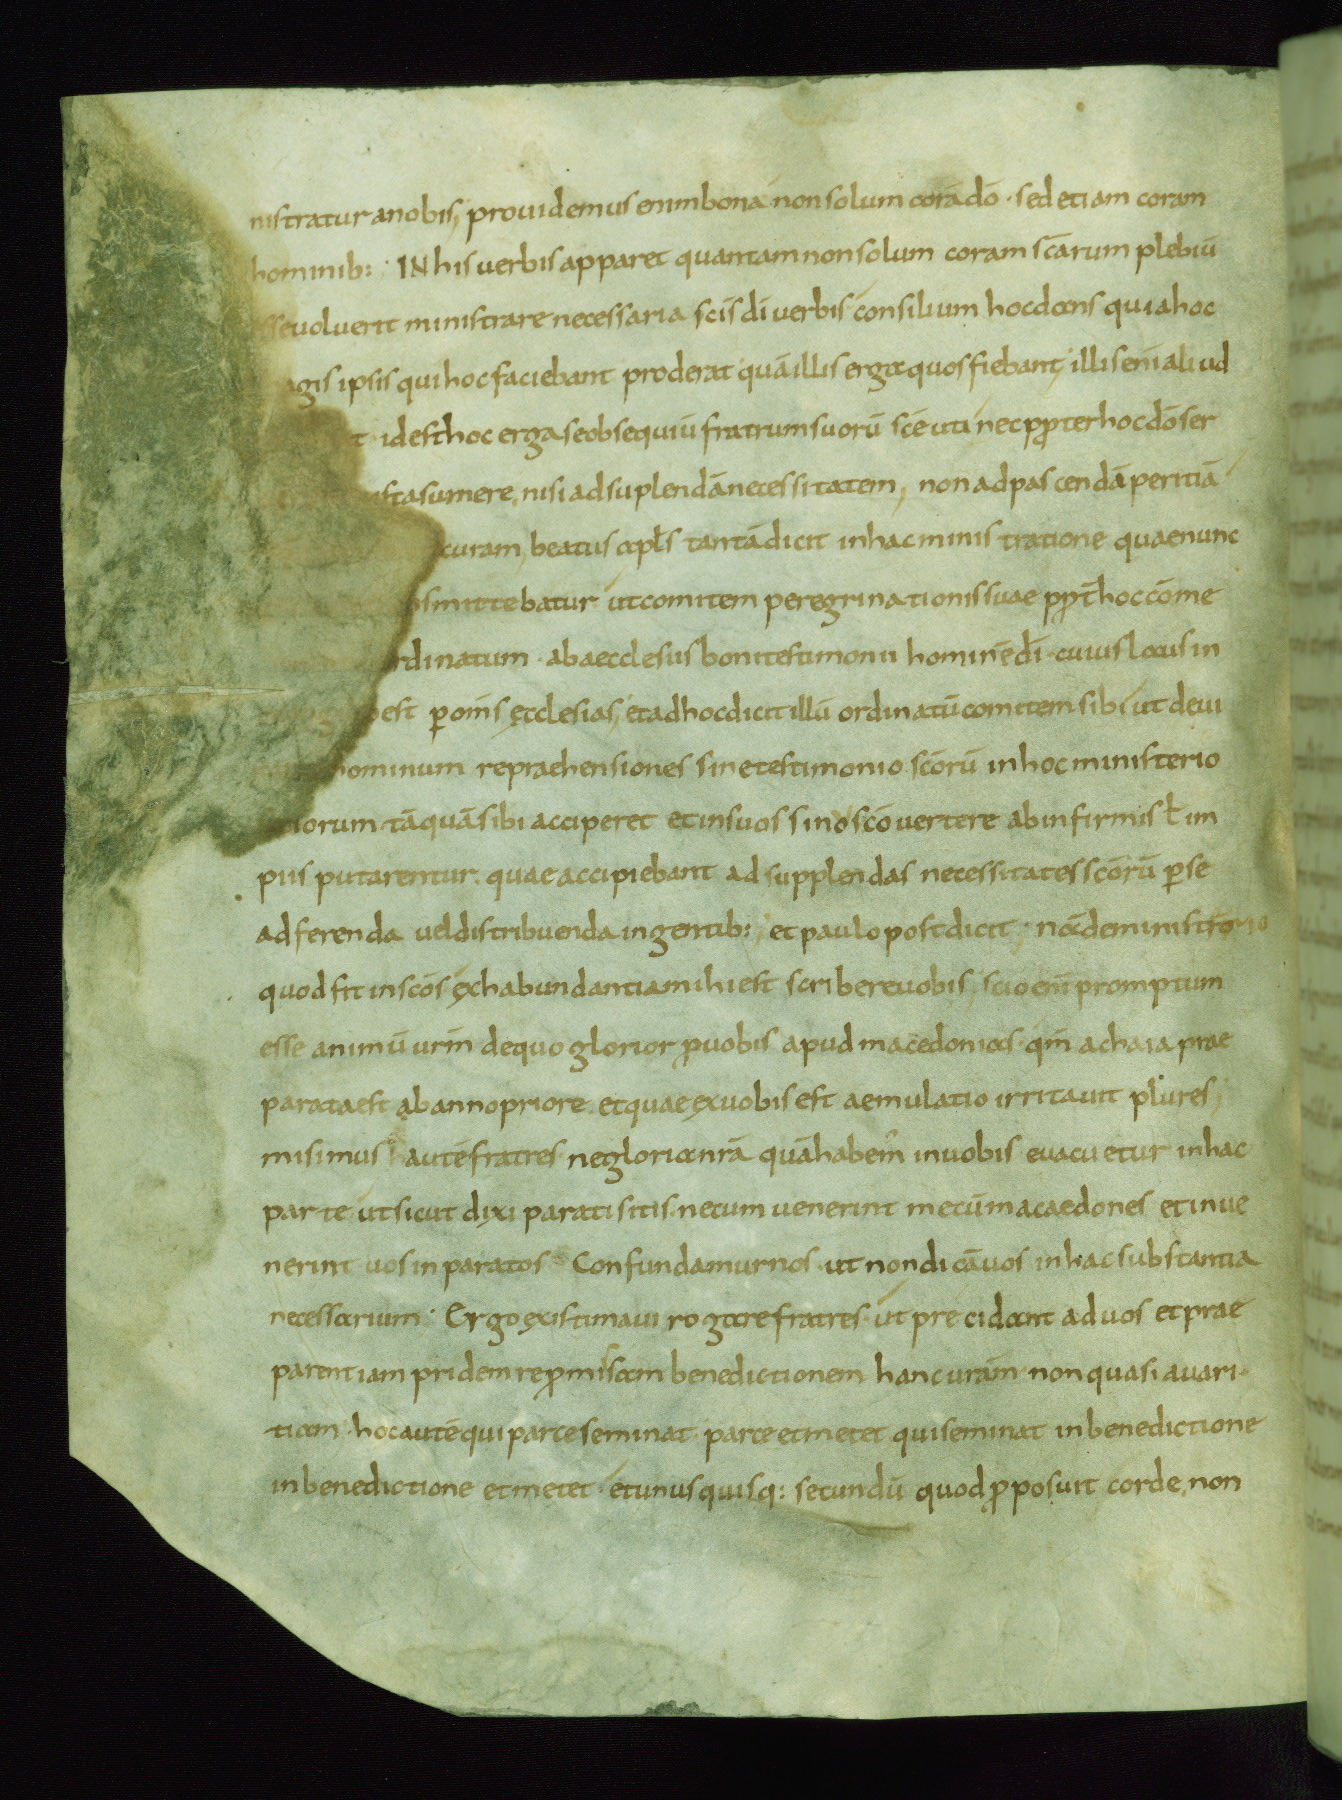 nistratur a nobis, prouidemus enim bona non solum corā dō · sed etiam coram
hominib: · IN his uerbis apparet quantam non solum coram scārum plebiū
sse uoluerit ministrare necessaria scis dī uerbis consilium hoc docens quia hoc
agis ipsis qui hoc faciebant proderat quā illis erga quos fiebant, illis enī aliud
t · id est hoc erga se obsequiū fratrum suorū scē uti nec ppter hoc dō ser
sta sumere, nisi ad suplendā necessitatem, non ad pascendā peritiā
curam, beatus apls tantā dicit in hac ministratione quae nunc
smittebatur ut comitem peregrinationis suae ppt hoc come
rdinatum · ab aecclesiis boni testimonii hominē dī · cuius locus in
est p oms ecclesias, et ad hoc dicit illū ordinatū comitem sibi ut deui
hominum repraehensiones sine testimonio scōrū in hoc ministerio
iorum tāquā sibi acciperet et in suos sinos cōuertere ab infirmis ł im
piis putarentur quae accipiebant ad supplendas necessitates scōrū p se
adferenda uel distribuenda ingentib:, et paulo post dicit, nā de ministrorio
quod fit in scōs ex habundantia mihi est scribere uobis, scio enī promptum
esse animū urm de quo glorior p uobis apud macedonias · qm achaia prae
parata est ab anno priore et quae ex uobis est aemulatio irritauit plures,
misimus autē fratres ne gloria nrā quā habem in uobis euacuetur in hac
parte ut sicut dixi parati sitis · ne cum uenerint mecū macaedones et inue
nerint uos inparatos Confundamur nos ut non dicā uos in hac substantia
necessarium · Ergo existimaui rogare fratres ut precidant ad uos et prae
parent iam pridem repmisam benedictionem hanc uram non quasi auari·
tiam · hoc autē qui parce seminat parce et metet qui seminat in benedictione
in benedictione et metet · et unus quisq: secundū quod pposuit corde, non